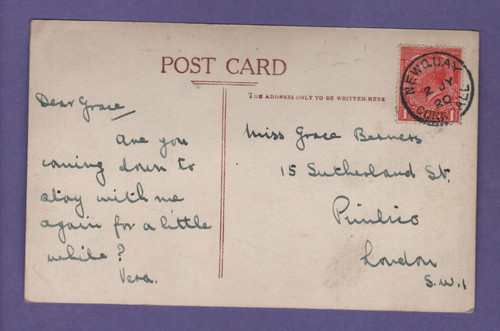 POST CARD
THE ADDRESS ONLY TO BE WRITTEN HERE
NEWQUAY
2 JY
20
CORNWALL
1 1
Dear Grace
are you
coming down to
stay with me
again for a little
while?
Vera.
Miss Grace Benners
15 Sutherland St.
Pimlico
London
S.W.1